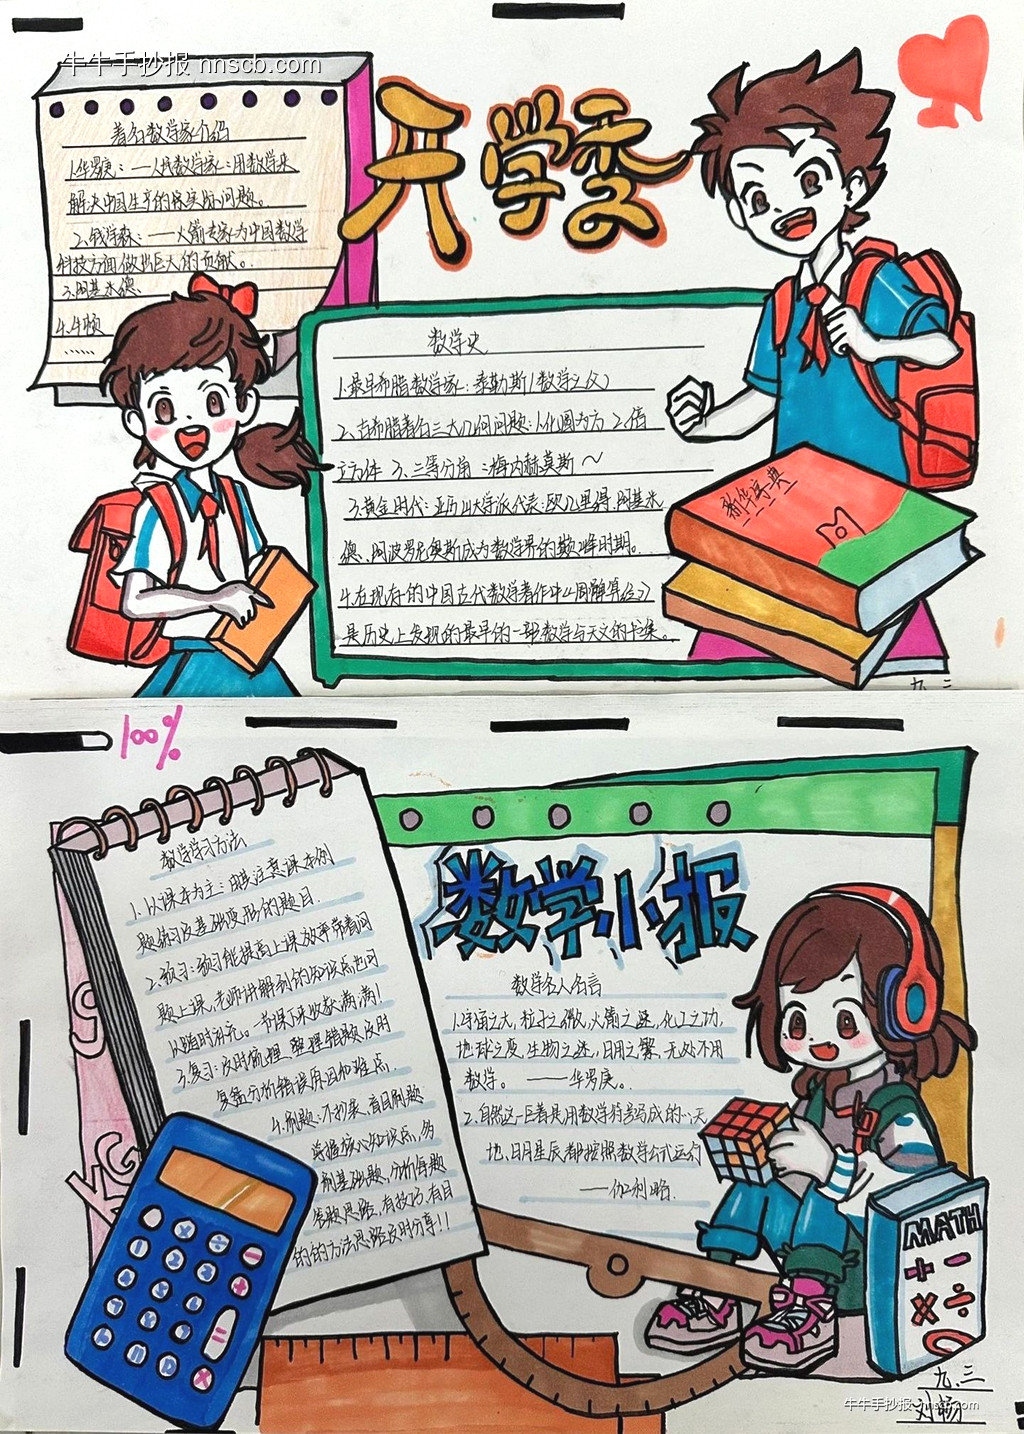 牛牛手抄报 nnscb.com
开学季
著名数学家介绍
1.华罗庚：一人民数学家：用数学来
解决中国生产的保实际问题。
2.钱学森：一火箭专家为中国数学
科技方面做出巨大的贡献。
3.阿基米德
4.牛顿
......
数学史
1.最早希腊数学家：泰勒斯(数学之父)
2、古希腊著名三大几何问题:1.化圆为方 2.倍
立方体 3.三等分角 :梅内赫莫斯～
3.黄金时代:亚历山大学派代表:欧几里得.阿基米
德、阿波罗尼奥斯成为数学界的巅峰时期。
4.在现存的中国古代数学著作中《周髀算经》
是历史上发现的最早的一部数学与天文的书集。
新华字典
九.三
100%
数学学习方法
1.以课本为主:尤其注意课本例
题练习及基础变形的题目.
2.预习:预习能提高上课效率带着问
题上课,老师讲解到的知识点也可
以随时补充。一节课下来收获满满!
3.复习:及时梳理.整理错题及时
复盘分析错误原因和难点.
4.刷题:不扎实、盲目刷题
掌握核心知识点,多
刷基础题,分析每题
答题思路,有技巧,有目
的的方法思路及时分享!!
数学小报
数学名人名言
1.宇宙之大,粒子之微,火箭之速,化工之巧,
地球之变,生物之迷,日用之繁,无处不用
数学。 ——华罗庚。
2.自然这一巨著是用数学符号写成的.天
地,日月星辰都按照数学公式运行
——伽利略.
MATH
+ −
× ÷
九.三
刘畅
牛牛手抄报 nnscb.com